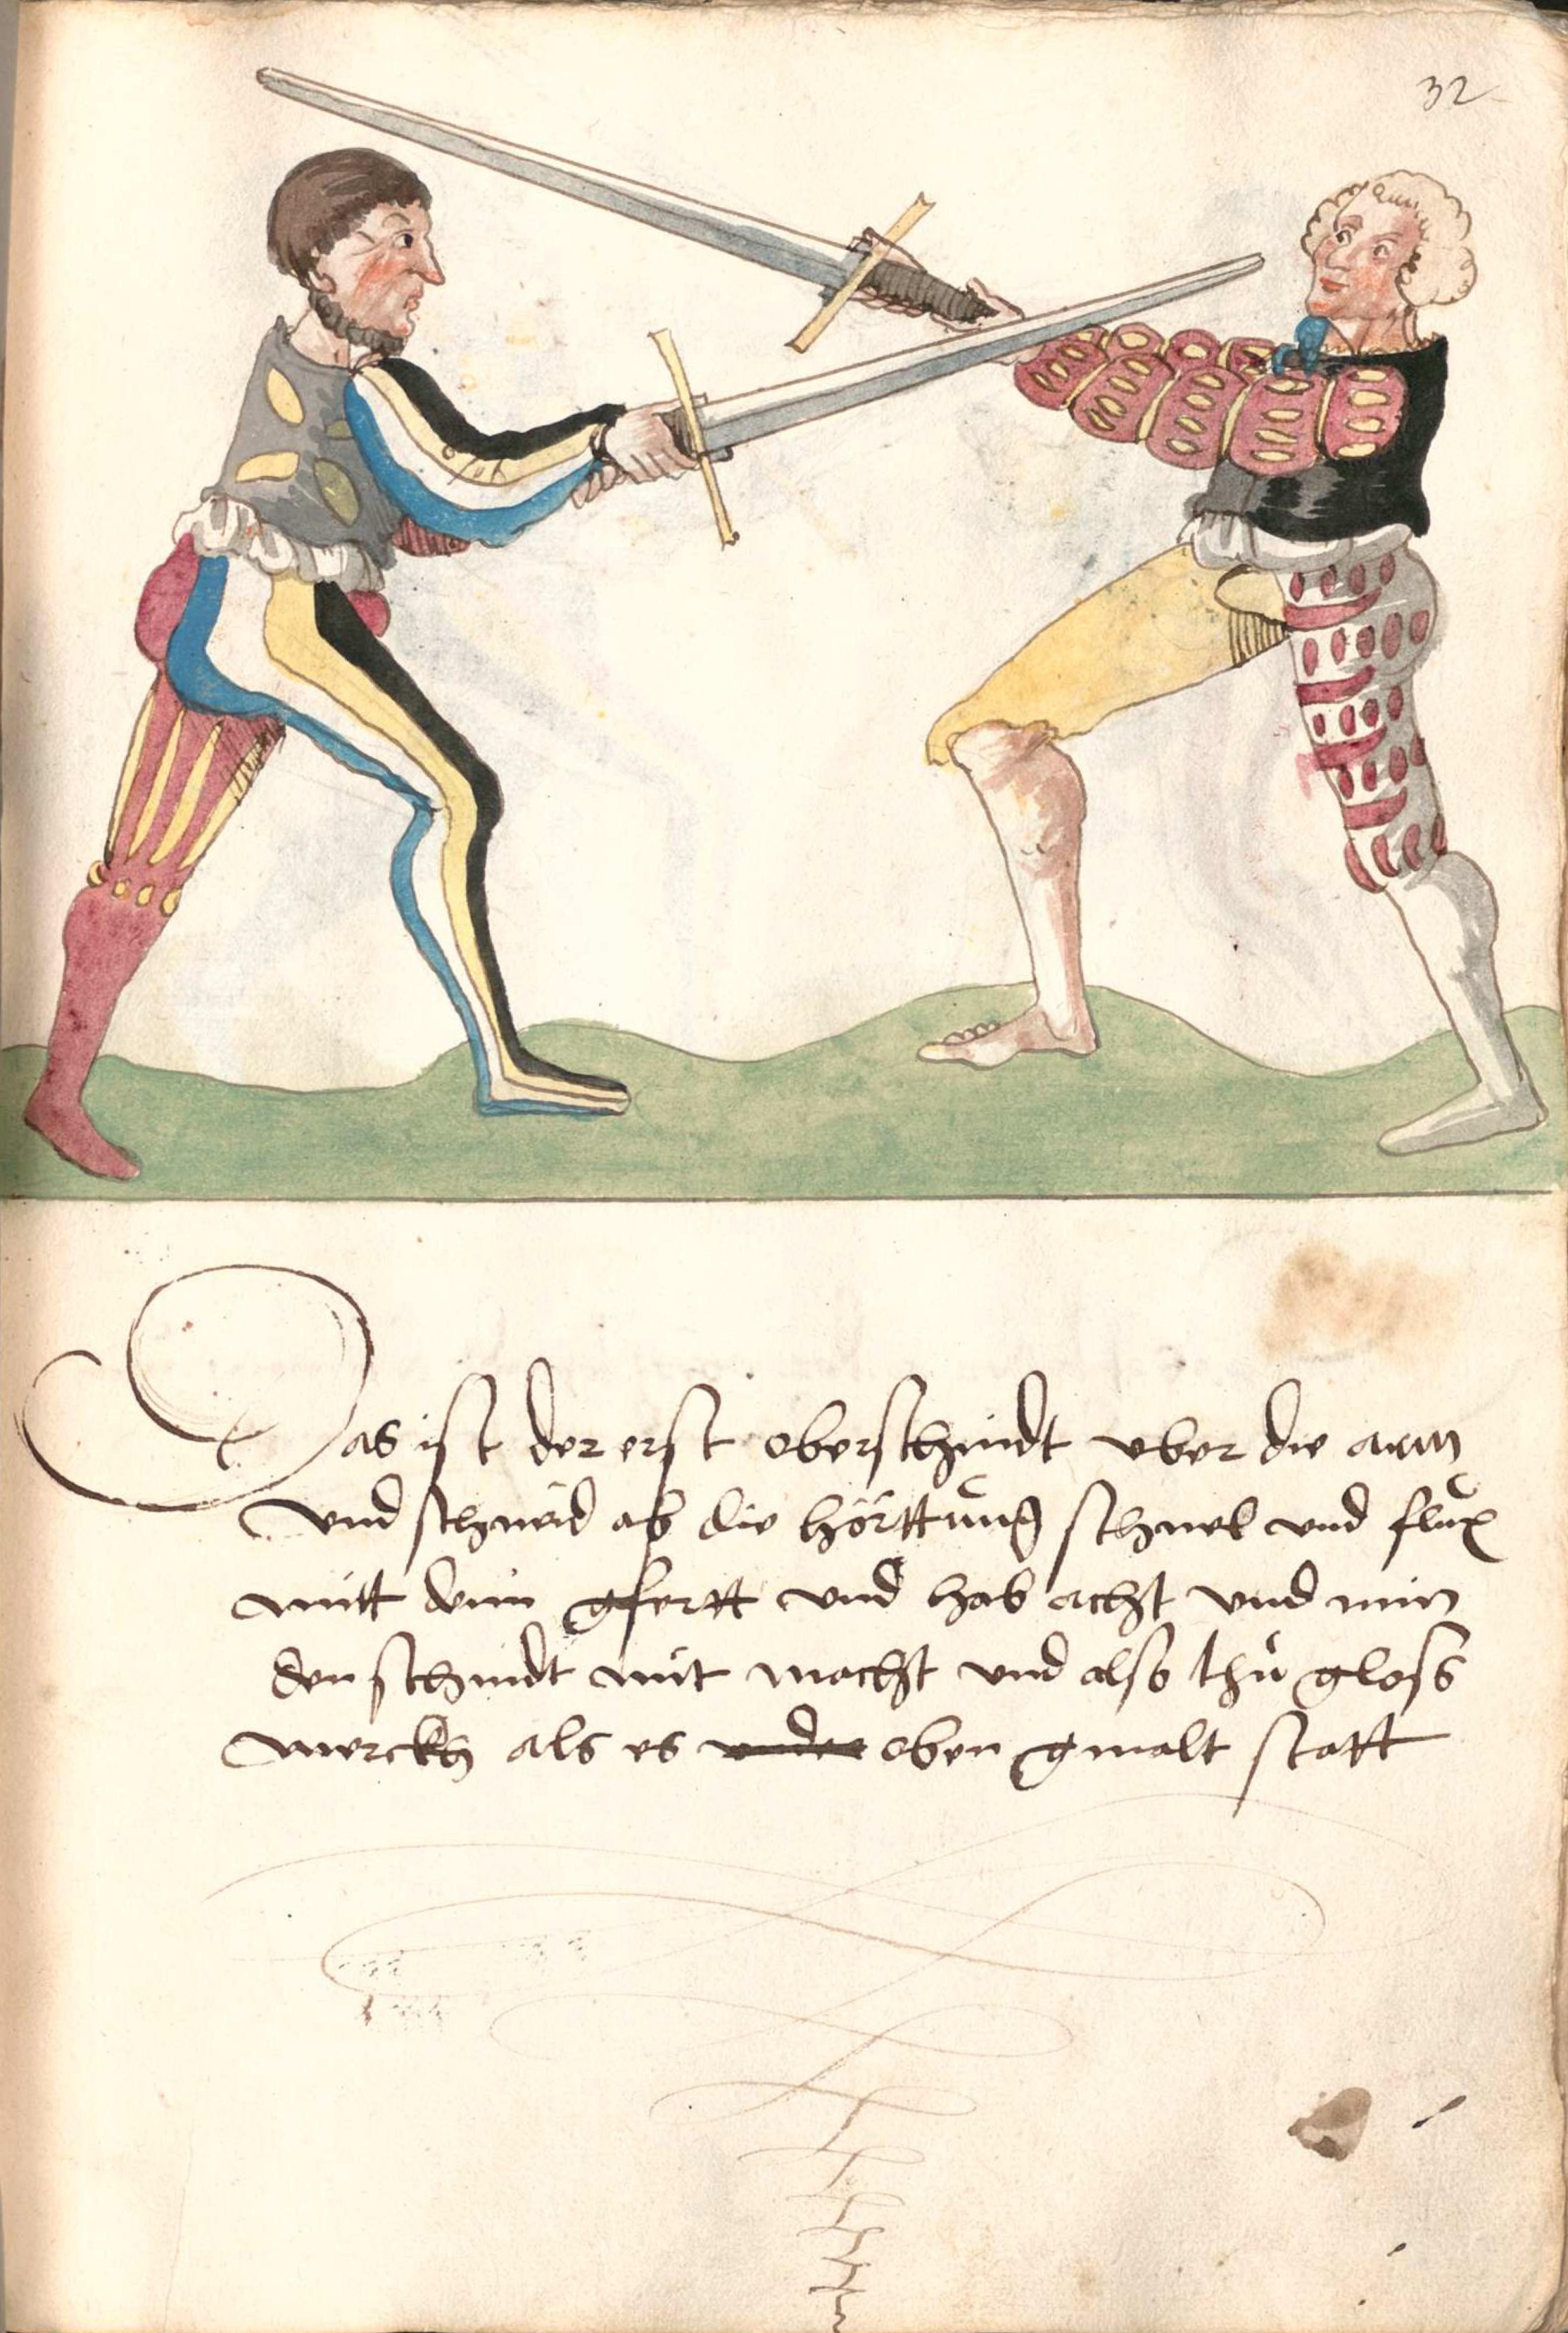 32
Das ist der erst oberschnidt vber die arm
vnd schneid ab die hörttung schnel vnd flux
mitt dem gfertt vnd hab acht vnd nim
den schnidt mit macht vnd also thů gloss
werckh als es oben gmalt statt